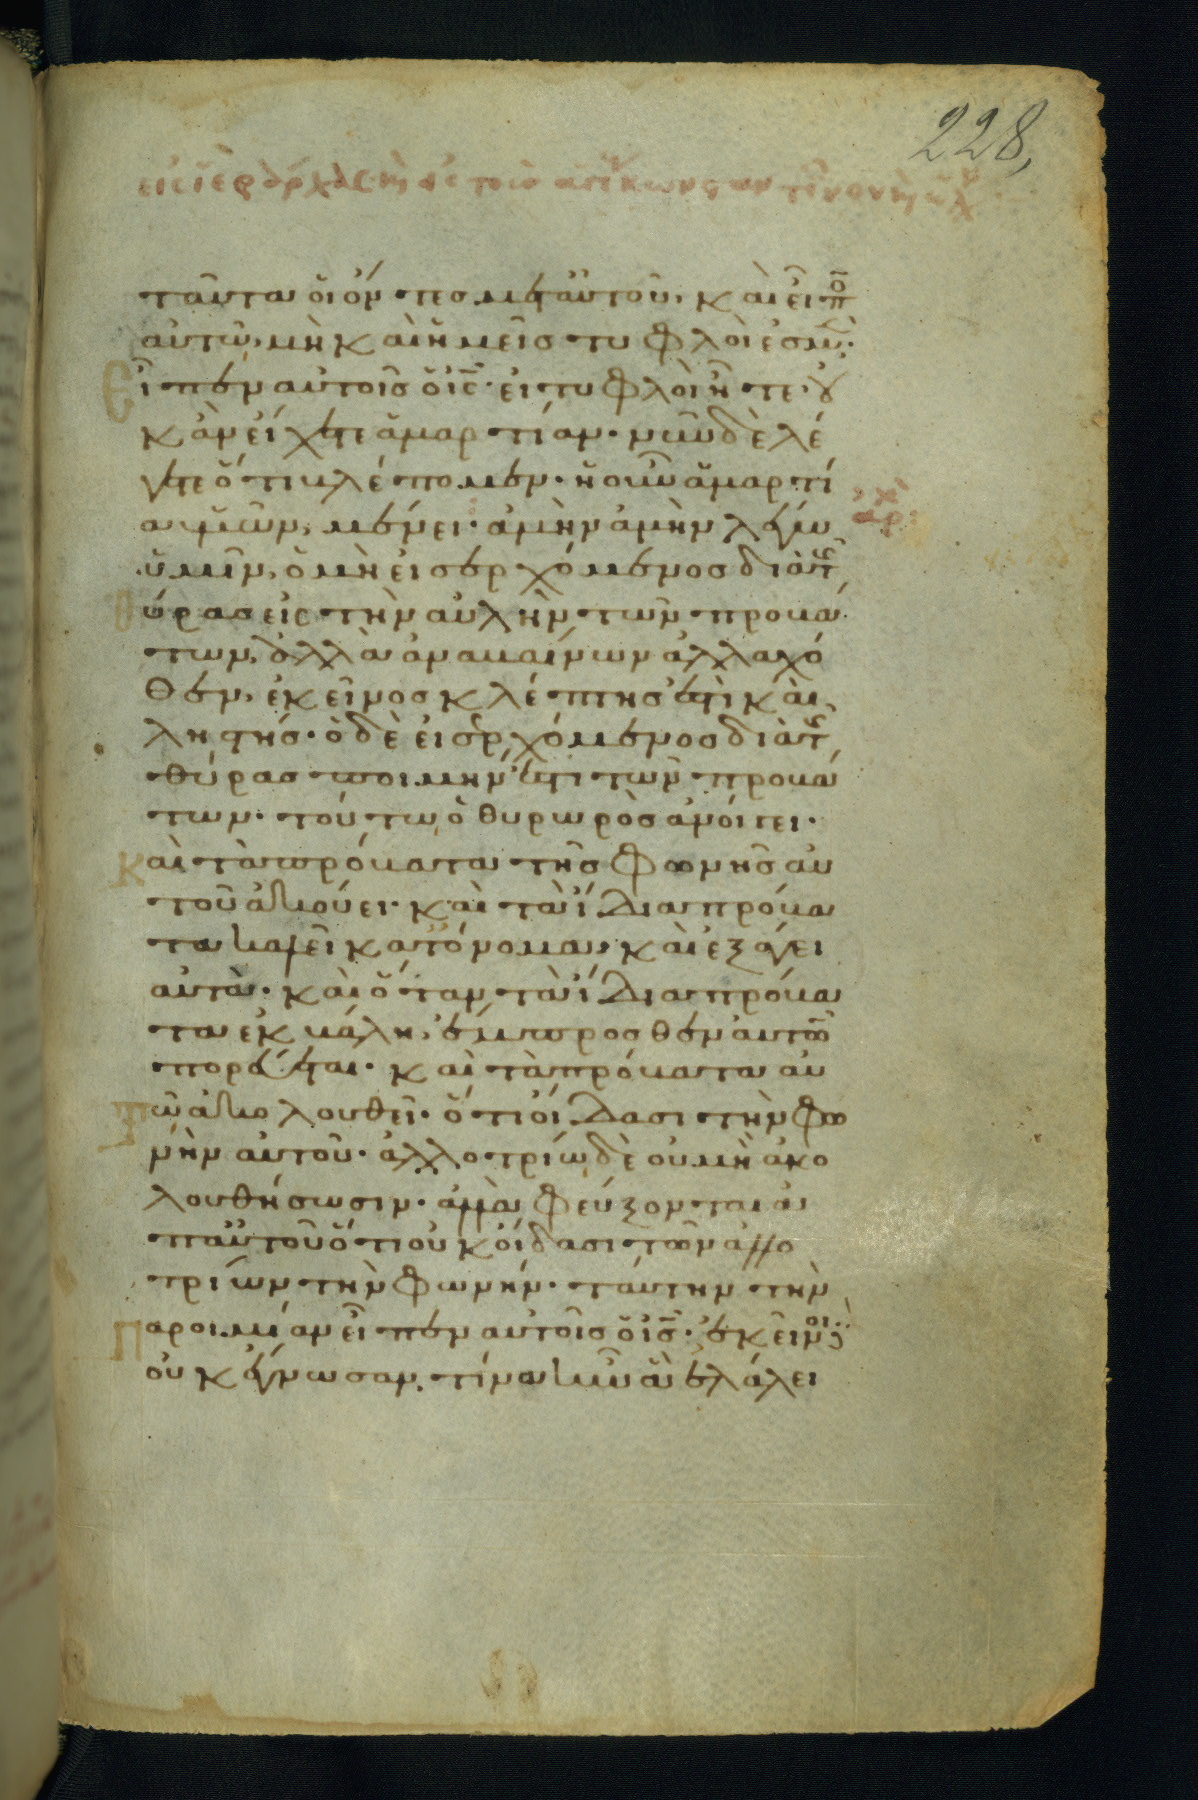 228,
ταῦτα οἱ ὄντες μετ αὐτοῦ, καὶ εἶπο
αὐτῶ, μὴ καὶ ἡμεῖς τυφλοὶ ἐσμεν·
Εἶπεν αὐτοῖς ὁ ις· εἰ τυφλοὶ ἦτε· οὐ
κ ἂν εἴχετε ἁμαρτίαν· νῦν δὲ λέ
γετε ὅτι βλέπομεν· ἡ οὖν ἁμαρτί
α ὑμῶν, μένει· ἀμὴν ἀμὴν λέγω
ἀρχὴ
ὑμῖν, ὁ μὴ εἰσερχόμενος διὰ τῆς
θύρας εἰς τὴν αὐλὴν τῶν προβά
των, ἀλλὰ ἀναβαίνων ἀλλαχό
θεν, ἐκεῖνος κλέπτης ἐστὶ καὶ
ληστής· ὁ δὲ εἰσερχόμενος διὰ τῆς
θύρας ποιμήν ἐστι τῶν προβά
των· τούτω ὁ θυρωρὸς ἀνοίγει·
Καὶ τὰ πρόβατα τῆς φωνῆς αὐ
τοῦ ἀκούει· καὶ τὰ ἴδια πρόβα
τα καλεῖ κατ ὄνομα, καὶ ἐξάγει
αὐτὰ· καὶ ὅταν τὰ ἴδια πρόβα
τα ἐκβάλη, ἔμπροσθεν αὐτῶν
πορεύεται· καὶ τὰ πρόβατα αὐ
τῶ ἀκολουθεῖ· ὅτι οἴδασι τὴν φω
νὴν αὐτοῦ· ἀλλοτρίω δὲ οὐ μὴ ἀκο
λουθήσωσιν· ἀλλὰ φεύξονται ἀ
π αὐτοῦ ὅτι οὐκ οἴδασι τῶν ἀλλο
τρίων τὴν φωνήν· ταύτην τὴν
Παροιμίαν εἶπεν αὐτοῖς ὁ ις· ἐκεῖνοι δὲ
οὐκ ἔγνωσαν, τίνα ἦν ἃ ἐλάλει